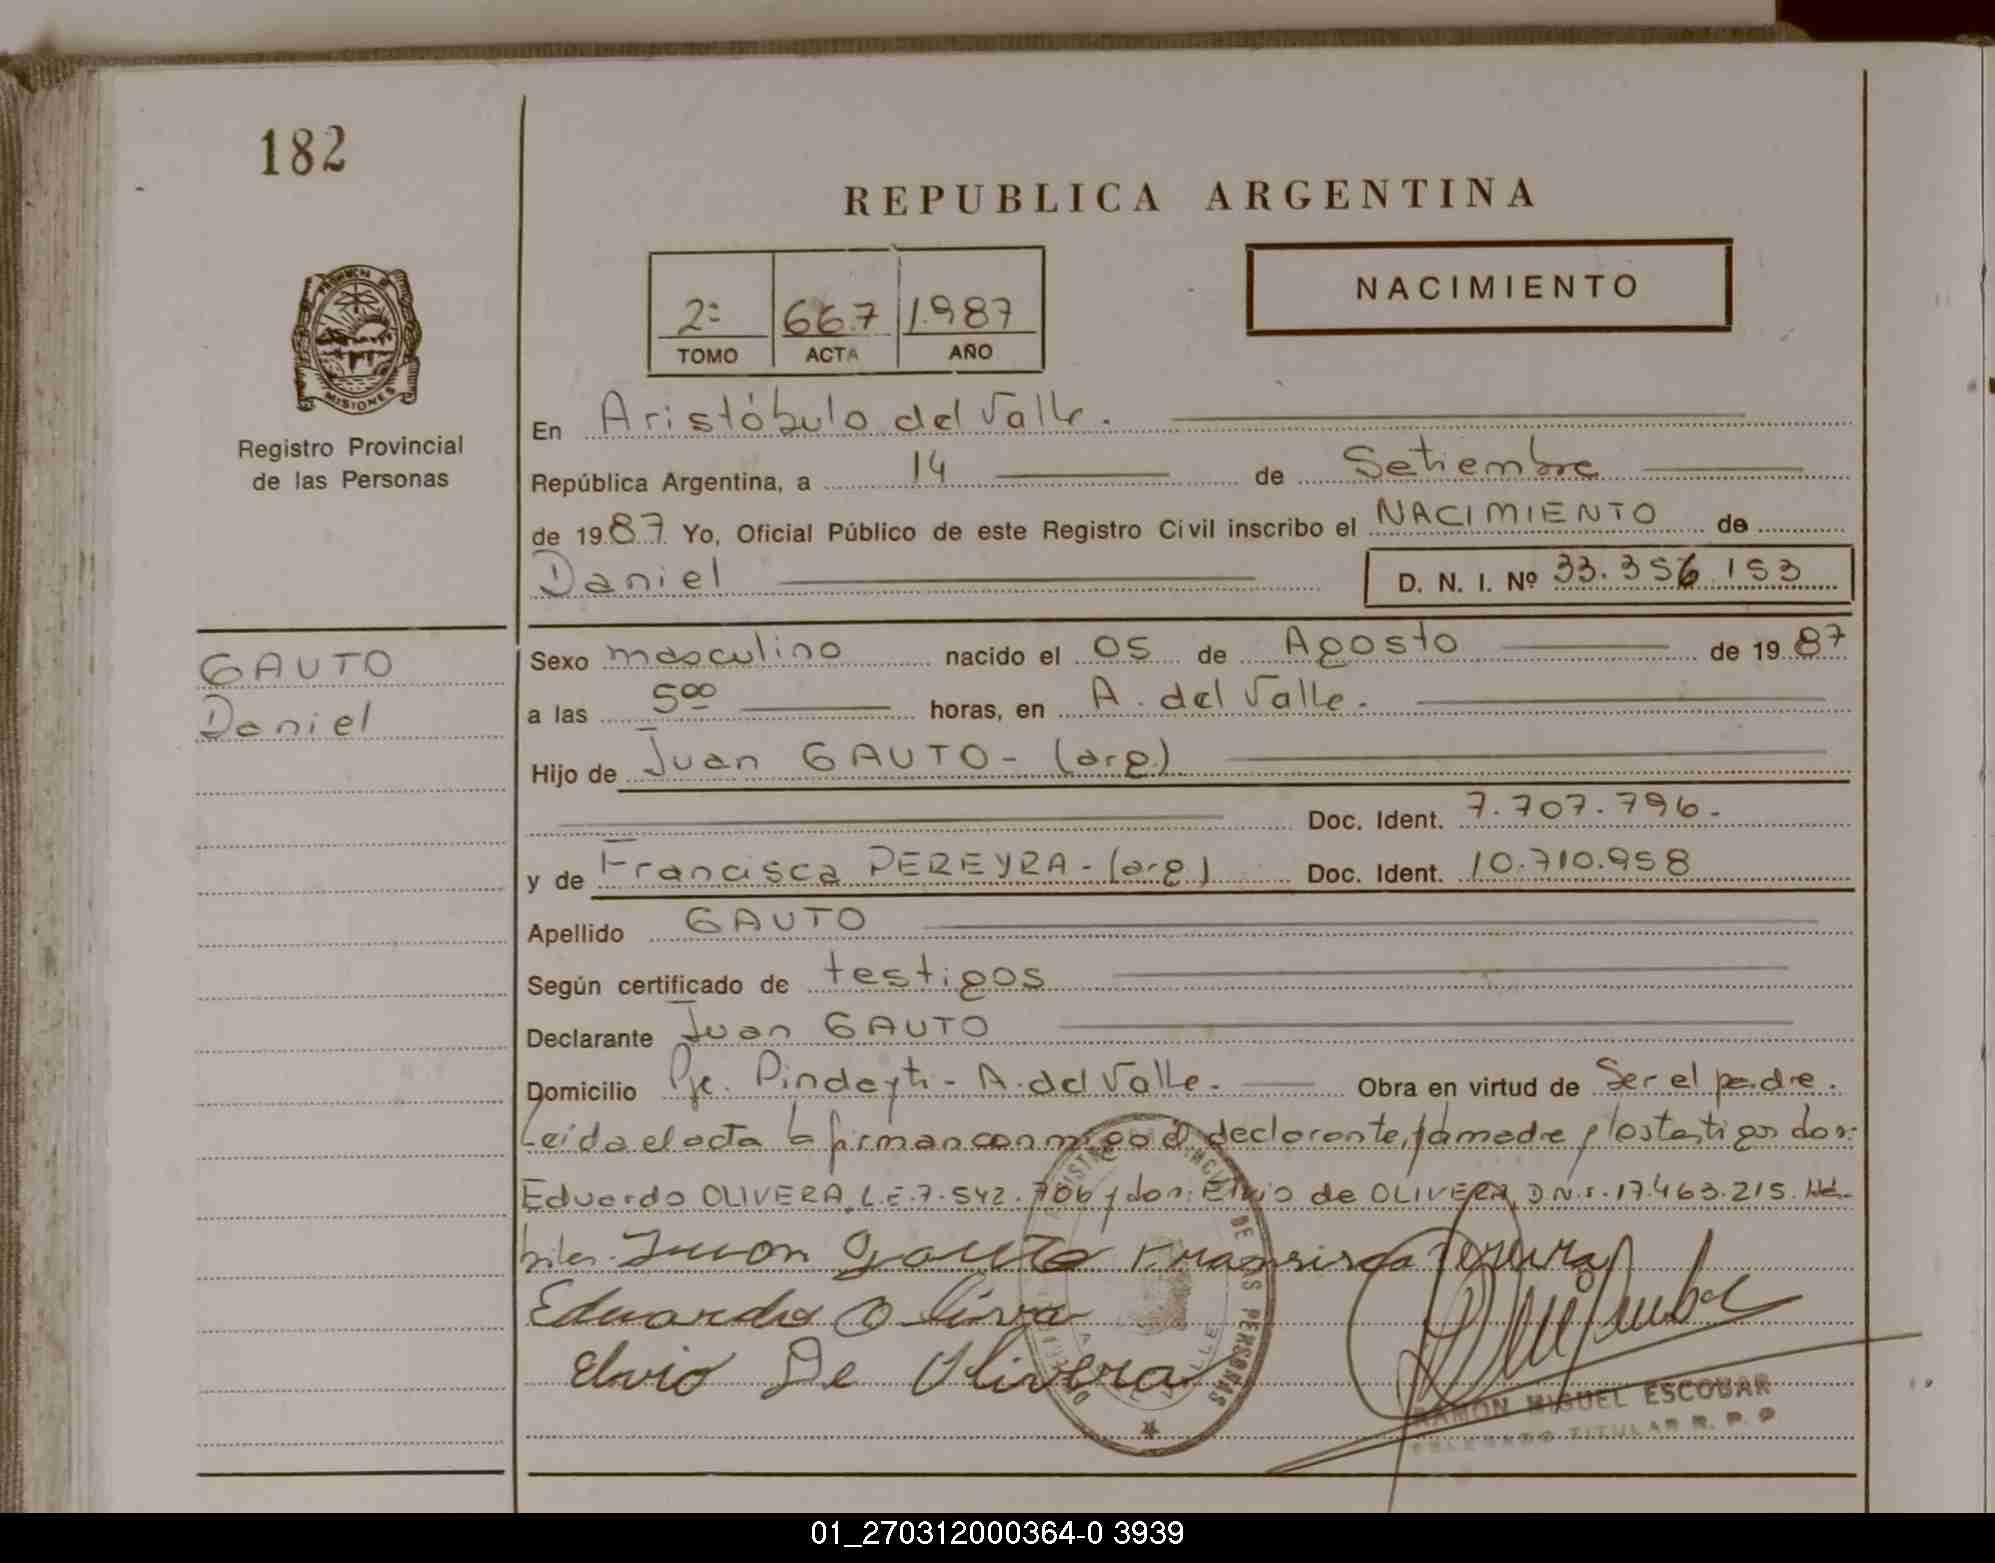 182
REPUBLICA ARGENTINA
PROVINCIA DE
MISIONES
Registro Provincial
de las Personas
2º 667 1.987
TOMO ACTA AÑO
NACIMIENTO
En Aristóbulo del Valle.
República Argentina, a 14 de Setiembre
de 19 87 Yo, Oficial Público de este Registro Civil inscribo el NACIMIENTO de
Daniel D. N. I. Nº 33.356.153
GAUTO
Daniel
Sexo masculino nacido el 05 de Agosto de 19 87
a las 5 00 horas, en A. del Valle.
Hijo de Juan GAUTO - (arg.)
Doc. Ident. 7.707.796.
y de Francisca PEREYRA - (arg.) Doc. Ident. 10.710.958
Apellido GAUTO
Según certificado de testigos
Declarante Juan GAUTO
Domicilio Pje. Pindayti - A. del Valle. Obra en virtud de Ser el padre.
Leída el acta la firman conmigo el declarante, la madre y los testigos don:
Eduardo OLIVERA, L.E. 7.542.706 y don: Elvio de OLIVERA, D.N.I. 17.463.215. Há-
biles.- Juan Gauto Fransisca Pereira
Eduardo Olivera
Elvio De Olivera
DE LAS PERSONAS
RAMON MIGUEL ESCOBAR
DELEGADO TITULAR R. P. P
01_270312000364-0 3939